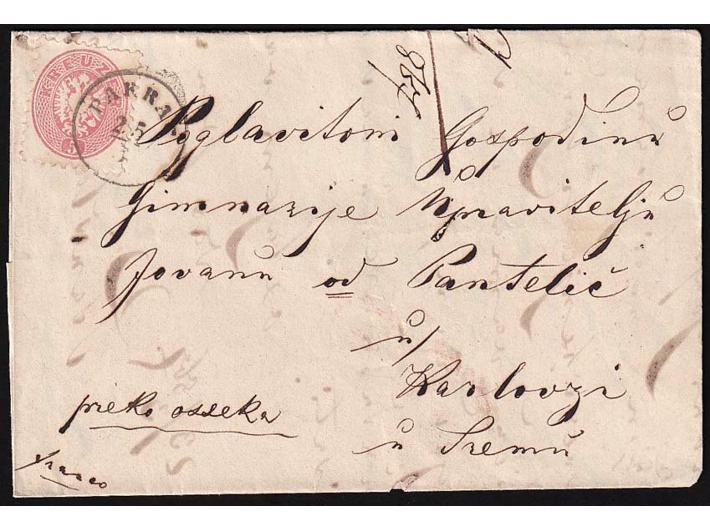 KREUZ
5
PAKRAC
2/5
Poglavitom Gospodinu
Gimnazije Upravitelju
Jovanu od Pantelić
u/
Karlovzi
u Sremu
preko osseka
franco